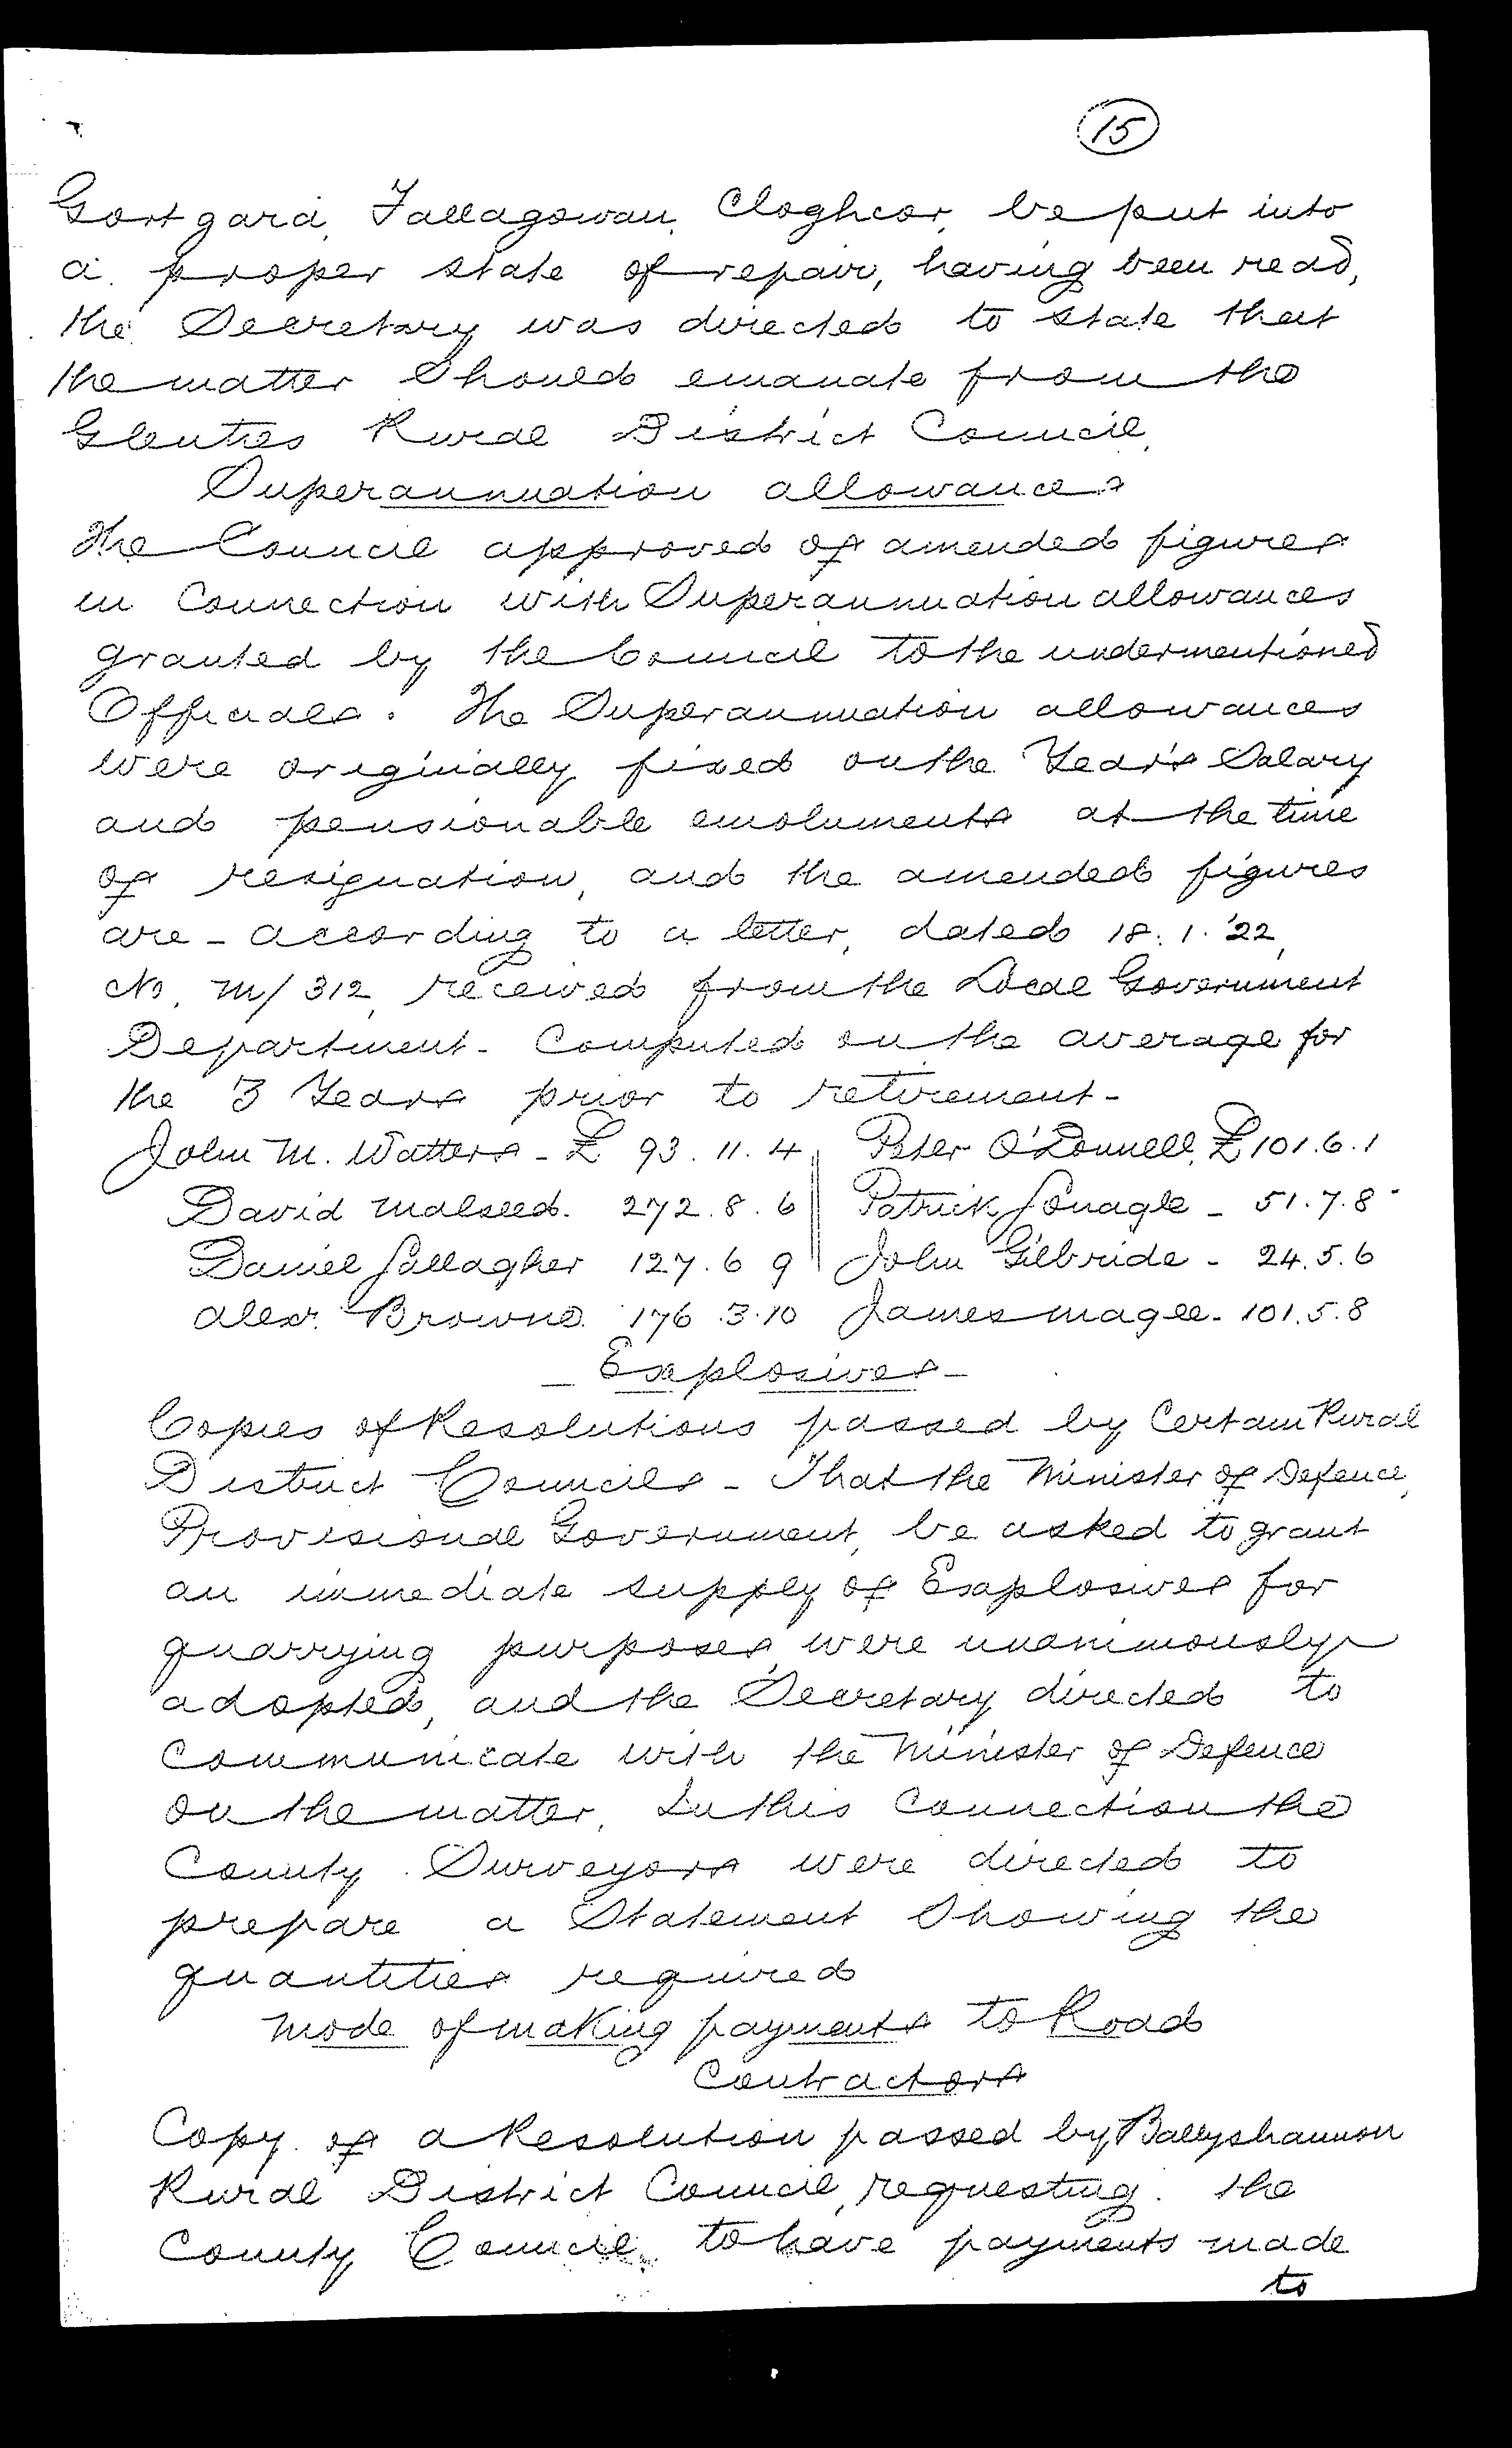 15
Gortgara, Tallagowan, Cloghcor, be put into
a proper state of repair, having been read,
the Secretary was directed to state that
the matter should emanate from the
Glenties Rural District Council.
Superannuation allowances
The Council approved of amended figures
in Connection with Superannuation allowances
granted by the Council to the undermentioned
Officials. The Superannuation allowances
were originally fixed on the Year's Salary
and pensionable emoluments at the time
of resignation, and the amended figures
are - according to a letter, dated 18.1.'22,
No. M/312, received from the Local Government
Department - Computed on the average for
the 3 Years prior to retirement -
John M. Watters - £ 93.11.4 Peter O'Donnell, £101.6.1
David Malseed. 272.8.6 Patrick Gonagle - 51.7.8
Daniel Gallagher 127.6 9 John Gilbride - 24.5.6
Alex. Browne 176.3.10 James Magee - 101.5.8
- Explosives -
Copies of Resolutions passed by Certain Rural
District Councils - That the Minister of Defence,
Provisional Government, be asked to grant
an immediate supply of Explosives for
quarrying purposes, were unanimously
adopted, and the Secretary directed to
Communicate with the Minister of Defence
on the matter. In this Connection the
County Surveyors were directed to
prepare a Statement showing the
quantities required
Mode of making payments to Road
Contractors
Copy of a Resolution passed by Ballyshannon
Rural District Council, requesting the
County Council to have payments made
to